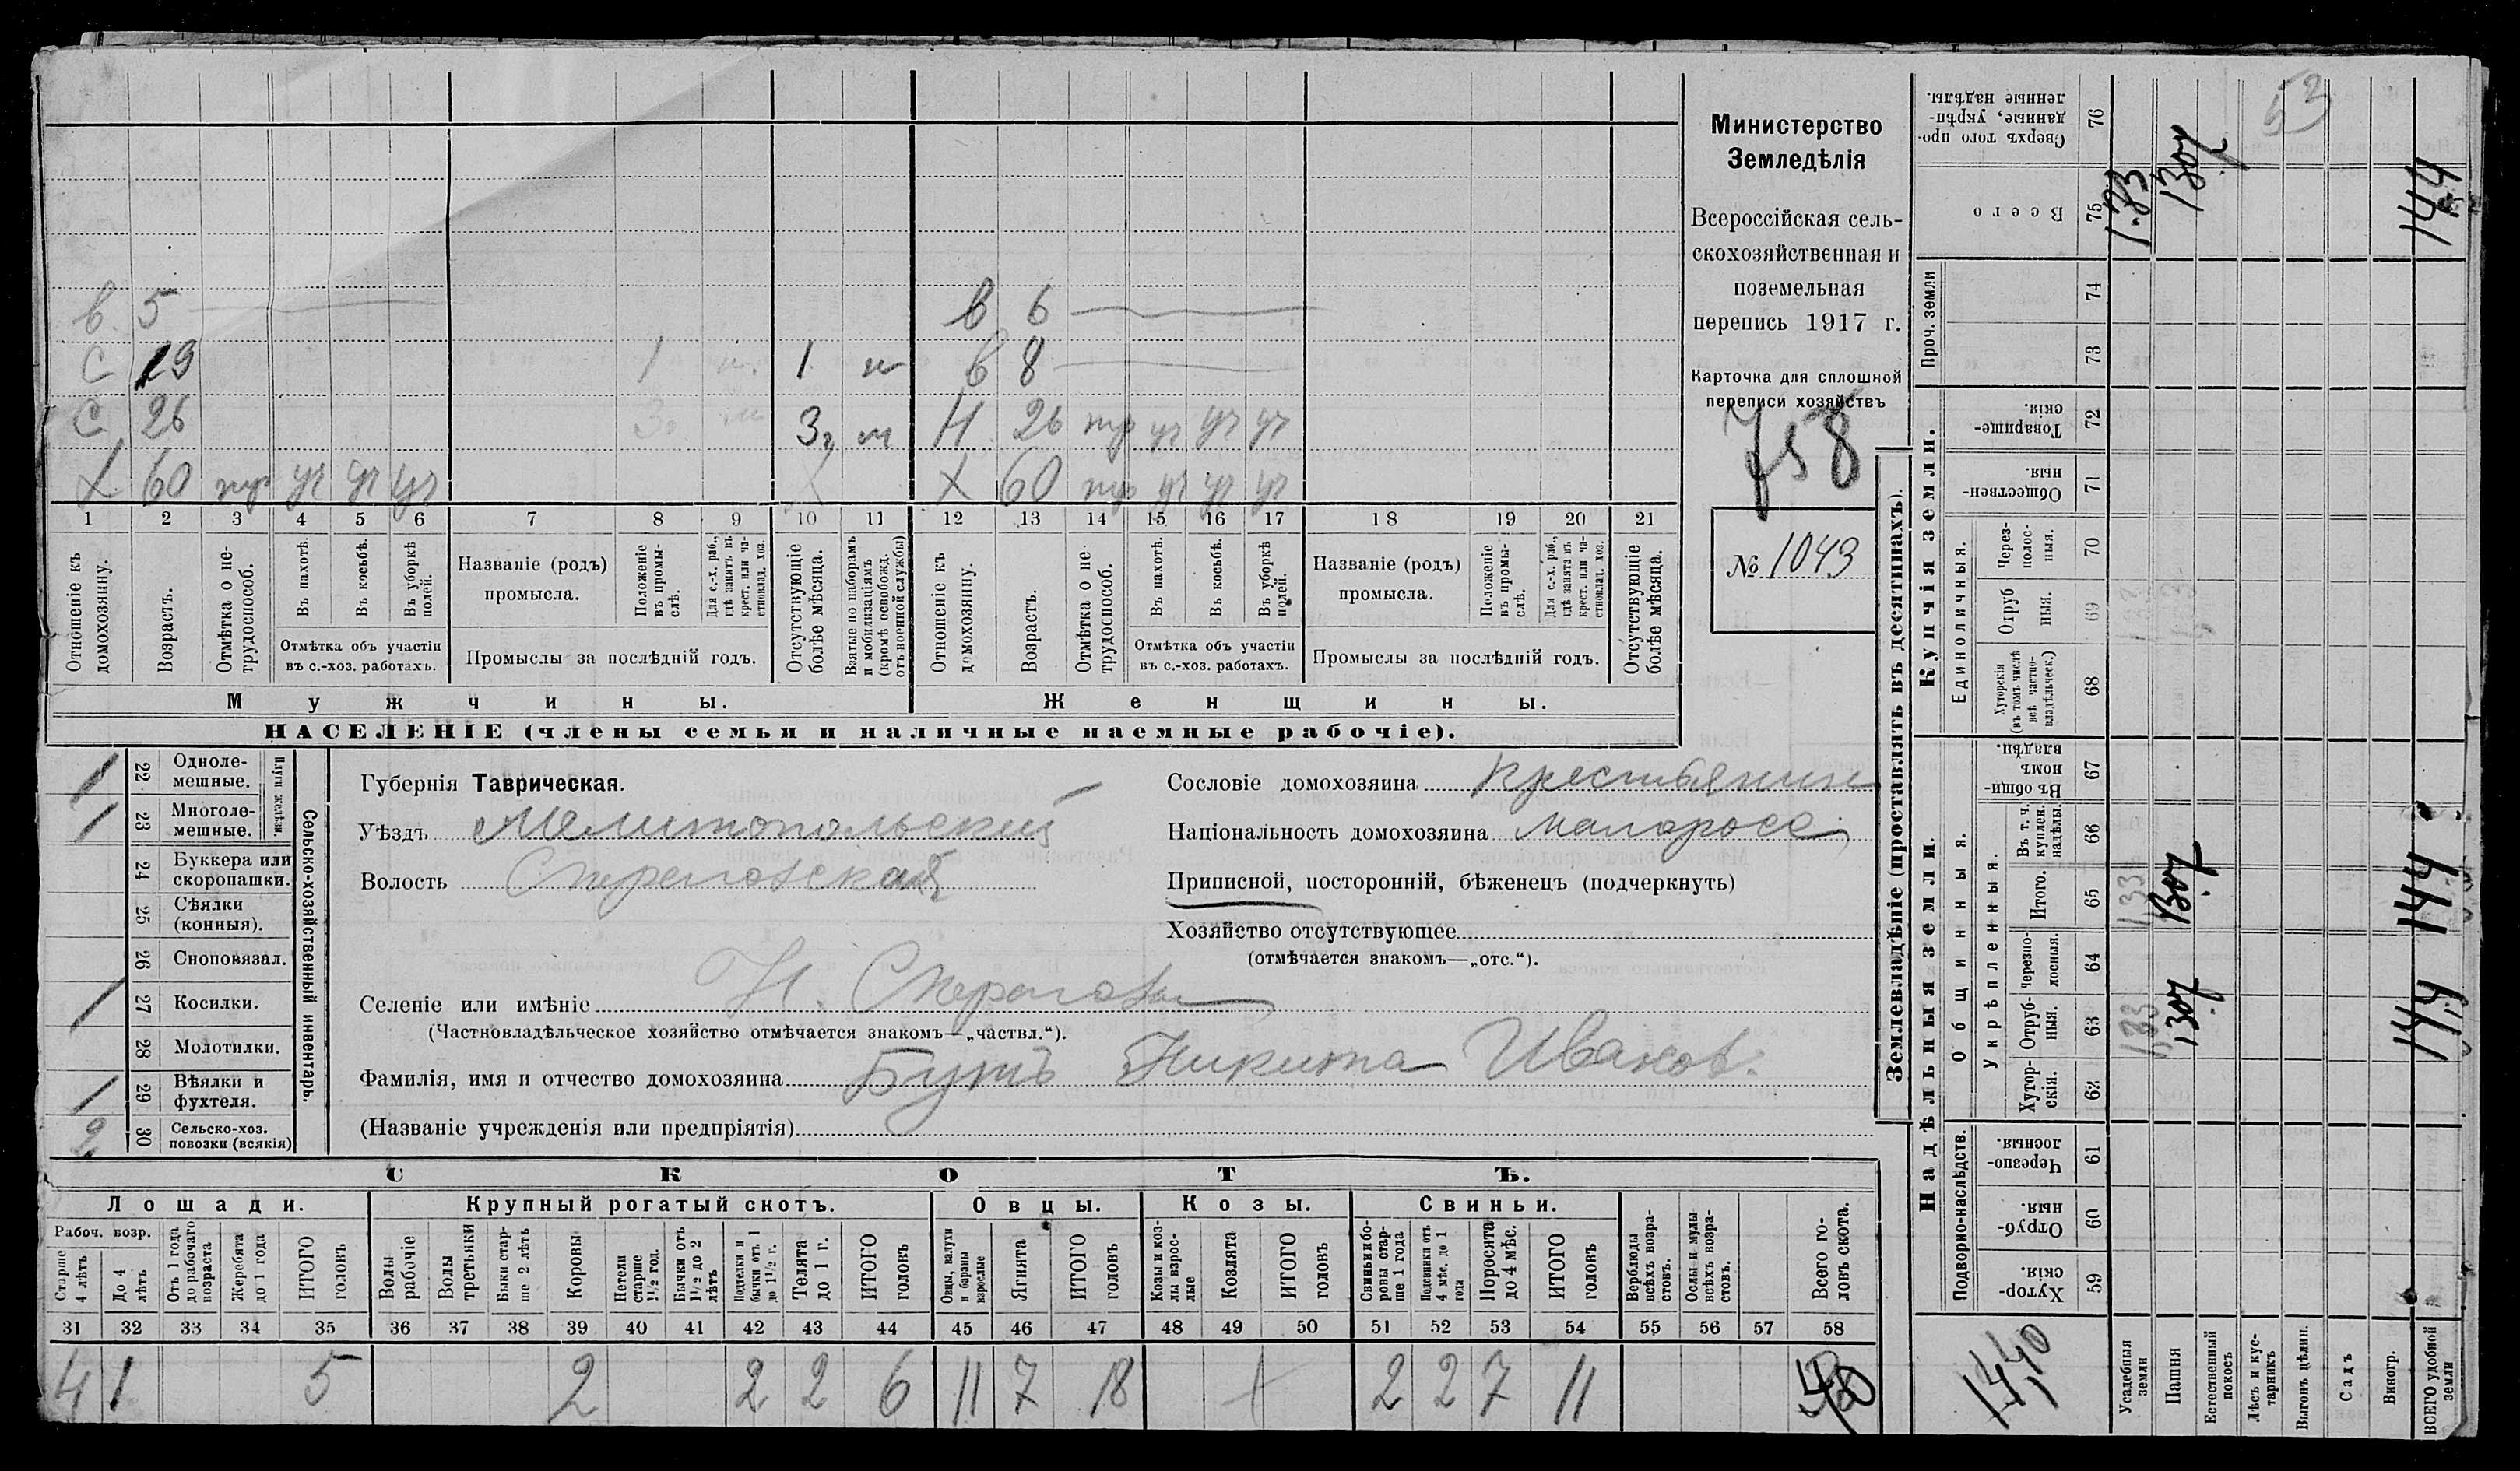 в. 5 — в 6 —
с 19 1 н. 1 н в 8 —
с 26 3 м 3 м Н 26 тр уч уч уч
Х 60 тр уч уч уч Х 60 тр уч уч уч
1 2 3 4 5 6 7 8 9 10 11 12 13 14 15 16 17 18 19 20 21
Отношеніе къ домохозяину.
Возрастъ.
Отмѣтка о нетрудоспособ.
Въ пахотѣ.
Въ косьбѣ.
Въ уборкѣ полей.
Отмѣтка объ участіи
въ с.-хоз. работахъ.
Названіе (родъ)
промысла.
Положеніе въ промыслѣ.
Для с.-х. раб., гдѣ занятъ въ крест. или частновлад. хоз.
Промыслы за послѣдній годъ.
Отсутствующіе болѣе мѣсяца.
Взятые по наборамъ и мобилизаціямъ (кромѣ освобожд. отъ военной службы)
Отношеніе къ домохозяину.
Возрастъ.
Отмѣтка о не трудоспособ.
Въ пахотѣ.
Въ косьбѣ.
Въ уборкѣ полей.
Отмѣтка объ участіи
въ с.-хоз. работахъ.
Названіе (родъ)
промысла.
Положеніе въ промыслѣ.
Для с.-х. раб., гдѣ занята въ крест. или частновлад. хоз.
Промыслы за послѣдній годъ.
Отсутствующіе болѣе мѣсяца.
Мужчины. Женщины.
НАСЕЛЕНІЕ (члены семьи и наличные наемные рабочіе).
Министерство
Земледѣлія
Всероссійская сель-
скохозяйственная и
поземельная
перепись 1917 г.
Карточка для сплошной
переписи хозяйствъ
758
№ 1043
Сельско-хозяйственный инвентарь.
Плуги желѣзн.
1 22 Однолемешные.
1 23 Многолемешные.
24 Буккера или скоропашки.
25 Сѣялки (конныя).
26 Сноповязал.
1 27 Косилки.
28 Молотилки.
1 29 Вѣялки и фухтеля.
2 30 Сельско-хоз. повозки (всякія)
Губернія Таврическая.
Уѣздъ Мелитопольскій
Волость
Сословіе домохозяина крестьянин
Національность домохозяина малоросс
Приписной, посторонній, бѣженецъ (подчеркнуть)
Хозяйство отсутствующее
(отмѣчается знакомъ—„отс.“).
Селеніе или имѣніе Н.
(Частновладѣльческое хозяйство отмѣчается знакомъ—„частвл.“).
Фамилія, имя и отчество домохозяина Бутъ Никита Иванов.
(Названіе учрежденія или предпріятія)
СКОТЪ.
Лошади. Крупный рогатый скотъ. Овцы. Козы. Свиньи.
Рабоч. возр.
Старше 4 лѣтъ
До 4 лѣтъ
Отъ 1 года до рабочаго возраста
Жеребята до 1 года
ИТОГО головъ
Волы рабочіе
Волы третьяки
Быки старше 2 лѣтъ
Коровы
Нетели старше 1½ год.
Бычки отъ 1½ до 2 лѣтъ
Подтелки и бычки отъ 1 до 1½ г.
Телята до 1 г.
ИТОГО головъ
Овцы, валухи и бараны взрослые
Ягнята
ИТОГО головъ
Козы и козлы взрослые
Козлята
ИТОГО головъ
Свиньи и боровы старше 1 года
Подсвинки отъ 4 мѣс. до 1 года
Поросята до 4 мѣс.
ИТОГО головъ
Верблюды всѣхъ возрастовъ.
Ослы и мулы всѣхъ возрастовъ.
Всего головъ скота.
31 32 33 34 35 36 37 38 39 40 41 42 43 44 45 46 47 48 49 50 51 52 53 54 55 56 57 58
4 1 5 2 2 2 6 11 7 18 2 2 7 11 40
Землевладѣніе (проставлять въ десятинахъ).
Купчія земли.
Надѣльныя земли.
Сверхъ того проданные, укрѣпленные надѣлы. 76
Всего 75 1.33 1307 144
Проч. земли 74 73
Товарищескія. 72
Общественныя. 71
Единоличныя.
Черезполосныя. 70
Отрубныя. 69
Хуторскія (въ томъ числѣ всѣ частновладѣльческ.) 68
Общинныя.
Въ общинномъ владѣн. 67
Укрѣпленныя.
Въ т. ч. куплен. надѣлы. 66
Итого. 65 1,33 1307 144
Черезполосныя. 64
Отрубныя. 63 1,33 1307 14,4
Хуторскія. 62
Подворно-наслѣдств.
Черезполосныя. 61
Отрубныя. 60
Хуторскія. 59
14,40
Усадебныя земли
Пашня
Естественный покосъ
Лѣсъ и кустарникъ
Выгонъ цѣлин.
Садъ
Виногр.
ВСЕГО удобной земли
53